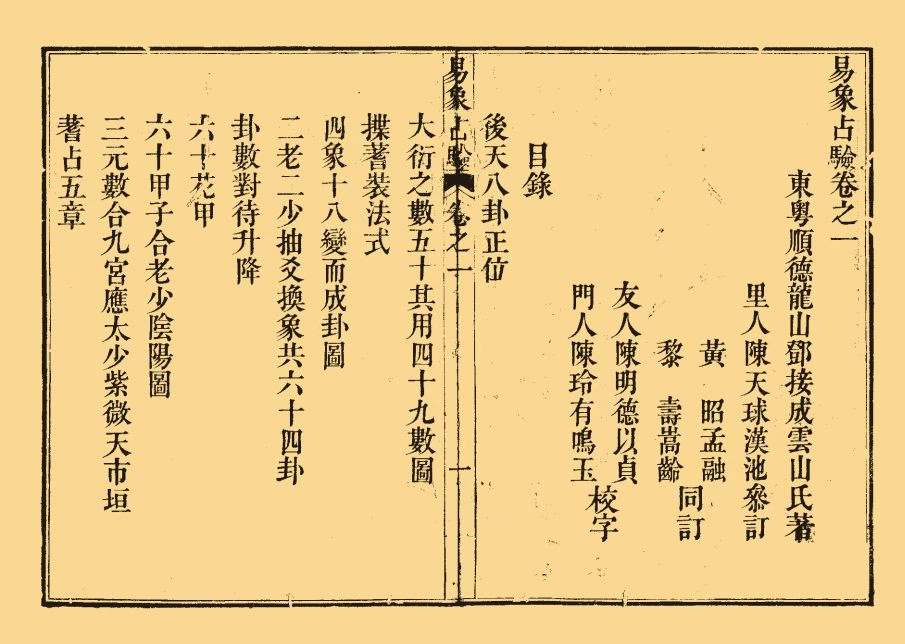 易象占驗卷之一
東粵順德龍山鄧接成雲山氏著
里人陳天球漢池叅訂
黃　昭孟融
黎　壽嵩齡
同訂
友人陳明德以貞
門人陳玲有鳴玉
校字
目錄
後天八卦正位
易象占驗　卷之一　一
大衍之數五十其用四十九數圖
揲蓍裝法式
四象十八變而成卦圖
二老二少抽爻換象共六十四卦
卦數對待升降
六十花甲
六十甲子合老少陰陽圖
三元數合九宮應太少紫微天市垣
蓍占五章